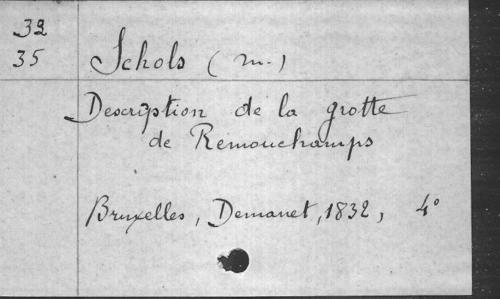 32
35
Schols (M.)
Description de la grotte
de Remouchamps
Bruxelles, Demanet, 1832, 4°